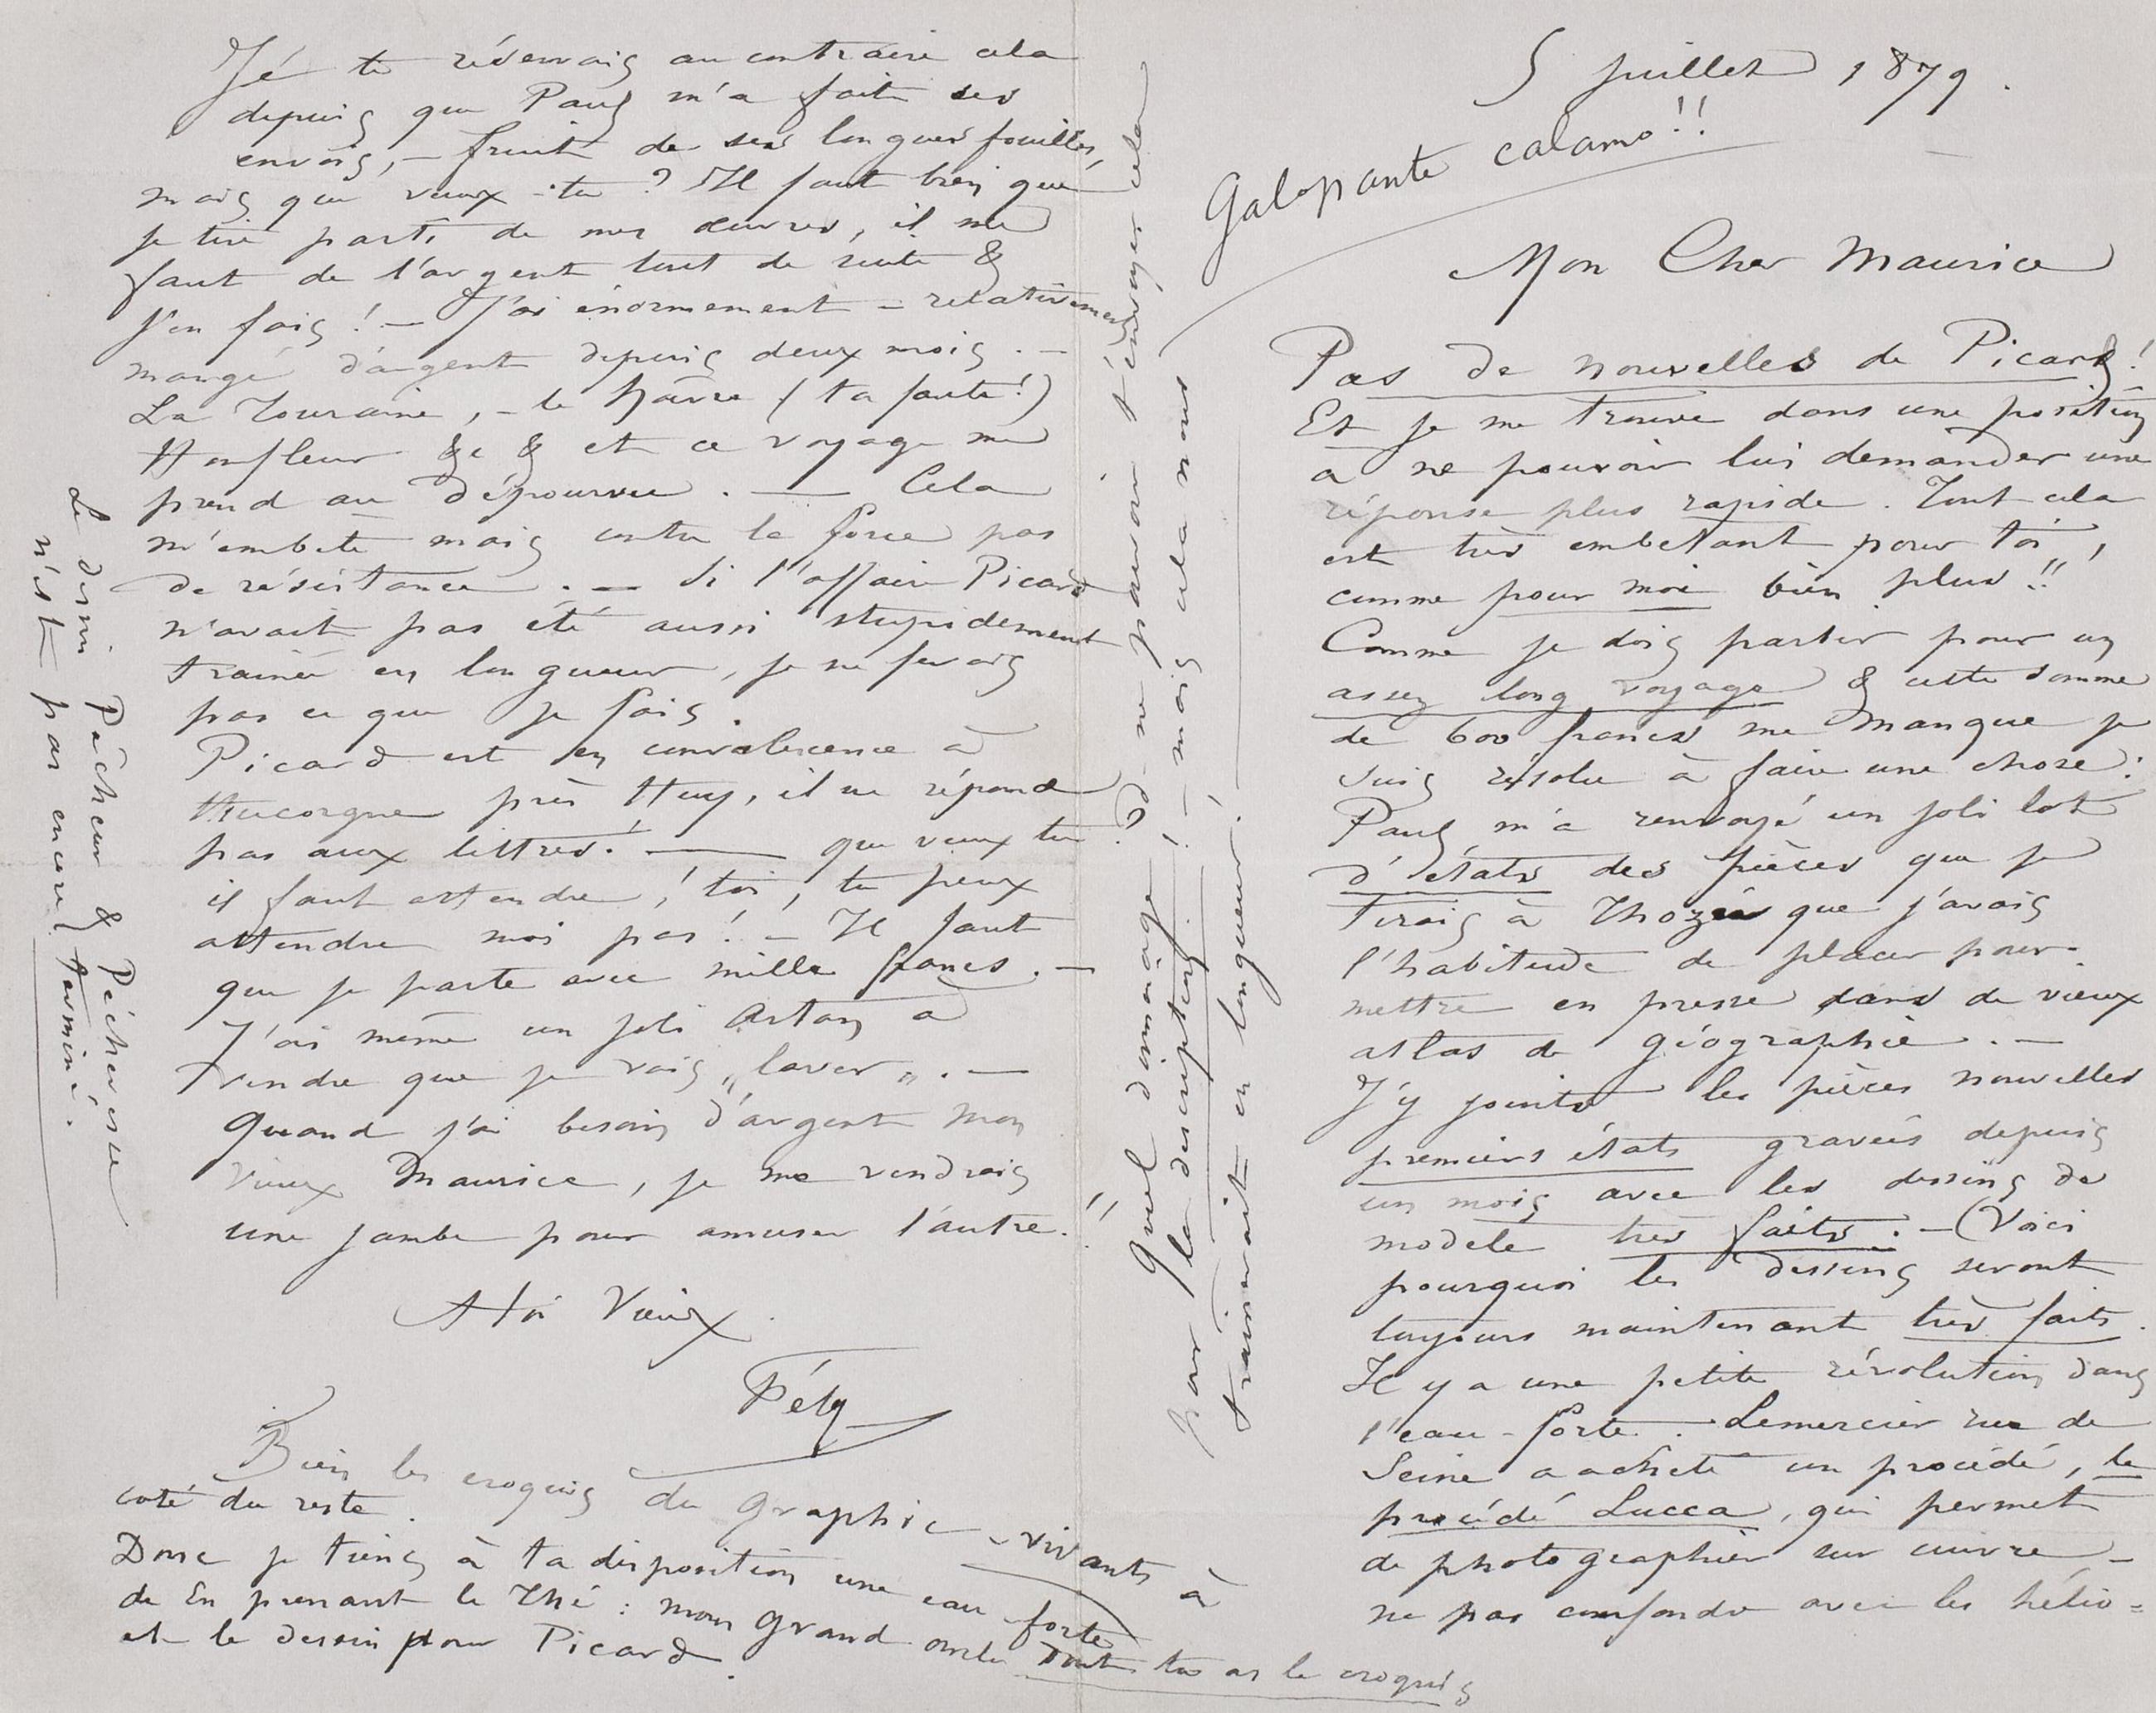 5 Juillet 1879.
Galopante calamo!!
Mon Cher Maurice
Pas de nouvelles de Picard!
Et je me trouve dans une position
à ne pouvoir lui demander une
réponse plus rapide. Tout cela
est très embetant pour toi,
comme pour moi bien plus!!
Comme je dois partir pour un
assez long voyage & cette somme
de 600 francs me manque je
suis résolu à faire une chose:
Paul m'a renvoyé un joli lot
d'états des pièces que je
tirais à Thozée que j'avais
l'habitude de placer pour
mettre en presse dans de vieux
atlas de géographie. —
J'y joints les pièces nouvelles
premiers états gravées depuis
un mois avec les dessins de
modele très faits. — (Voici
pourquoi les dessins seront
toujours maintenant très faits.
Il y a une petite révolution dans
l'eau-forte. Lemercier rue de
Seine a acheté un procédé, le
procédé Lucca, qui permet
de photographier sur cuivre —
ne pas confondre avec les hélio=
Je te réservais au contraire cela
depuis que Paul m'a fait ses
envois, — fruit de ses longues fouilles,
mais que veux-tu? Il faut bien que
je tire parti de mes œuvres, il me
faut de l'argent tout de suite &
j'en fais! — J'ai énormement – relativement
mangé d'argent depuis deux mois. —
La Touraine, – le Hâvre (ta faute!)
Honfleur &c & et ce voyage me
prend au dépourvu. — Cela
m'embete mais contre la force pas
de résistance. — Si l'affaire Picard
n'avait pas été aussi stupidement
trainée en longueur, je ne ferais
pas ce que je fais.
Picard est en convalescence à
Huccorgne près Huy, il ne répond
pas aux lettres! — que veux tu
il faut attendre! toi, tu peux
attendre moi pas! — Il faut
que je parte avec mille francs. —
J'ai même un joli Artan à
vendre que je vais „laver„. —
Quand j'ai besoin d'argent mon
vieux Maurice, je me vendrais
une jambe pour amuser l'autre.
A toi Vieux
Fély
Bien les croquis du Graphic – vivants à
coté du reste.
Donc je tiens à ta disposition une eau-forte
de En prenant le Thé: mon Grand oncle dont tu as le croquis
et le dessin pour Picard.
Le dessin Pêcheur & Pécheresse
n'est pas encore terminé.
Quel dommage! de ne pouvoir t'envoyer cela
par la description! — mais cela nous
trainerait en longueur!